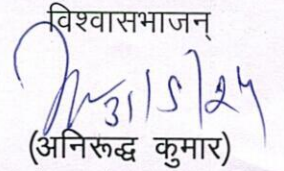 विश्वासभाजन्
31/5/24
(अनिरूद्ध कुमार)